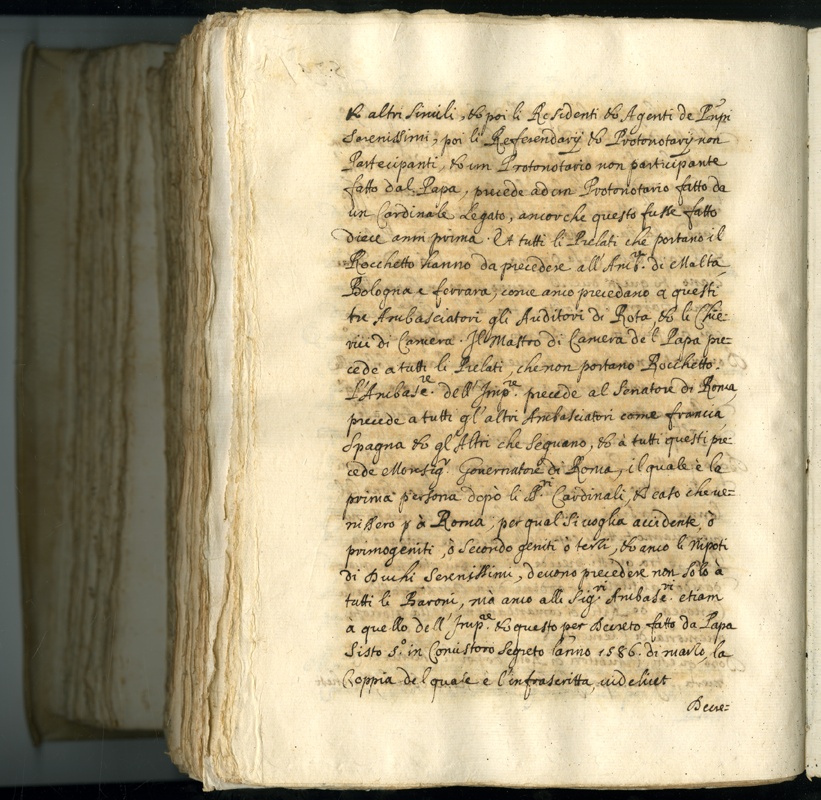 & altri simili, & poi li Residenti & Agenti de Pn̄pi
Serenissimi; poi li Referendarij & Protonotarij non
Partecipanti, & un Protonotario non participante
fatto dal Papa, precede ad un Protonotario fatto da
un Cardinale Legato, ancorche questo fusse fatto
diece anni prima. Et tutti li Prelati che portano il
Rocchetto hanno da precedere all'Amb.r di Malta,
Bologna e ferrara; come anco precedano a questi
tre Ambasciatori gli Auditori di Rota & li Chie=
rici di Camera. Il Mastro di Camera del Papa pre=
cede a tutti li Prelati, che non portano Rocchetto.
L'Ambase.re dell'Imp.re precede al Senatore di Roma,
precede a tutti gl'altri Ambasciatori come francia
Spagna & gl'Altri che seguano, & à tutti questi pre=
cede Monsig.r Governatore di Roma, il quale è la
prima persona dopò li Cardinali, & caso che ve=
nissero p à Roma, per qual si voglia accidente, ò
primogeniti, ò secondo geniti ò terzi, & anco li Nipoti
di Duchi Serenissimi, devono precedere non solo à
tutti li Baroni, mà anco alli Sig.ri Ambase.ri etiam
à quello dell'Imp.re & questo per Decreto fatto da Papa
Sisto 5.o in segreto l'anno 1586. di marzo, la
Coppia del quale è l'infrascritta, videlicet
Decre=